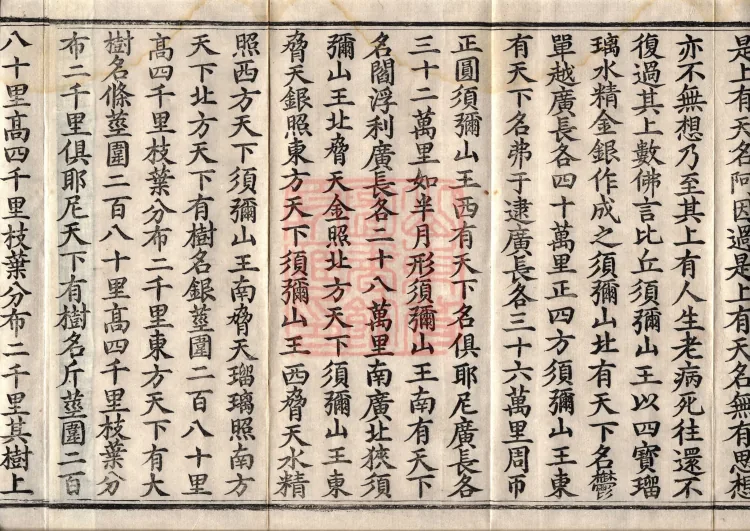 是上有天名阿因過是上有天名無有思想
亦不無想乃至其上有人生老病死往還不
復過其上數佛言比丘須彌山王以四寶瑠
璃水精金銀作成之須彌山北有天下名鬱
單越廣長各四十萬里正四方須彌山王東
有天下名弗于逮廣長各三十六萬里周帀
正圓須彌山王西有天下名俱耶尼廣長各
三十二萬里如半月形須彌山王南有天下
名閻浮利廣長各二十八萬里南廣北狹須
彌山王北脅天金照北方天下須彌山王東
脅天銀照東方天下須彌山王西脅天水精
照西方天下須彌山王南脅天瑠璃照南方
天下北方天下有樹名銀莖圍二百八十里
高四千里枝葉分布二千里東方天下有大
樹名條莖圍二百八十里高四千里枝葉分
布二千里俱耶尼天下有樹名斤莖圍二百
八十里高四千里枝葉分布二千里其樹上